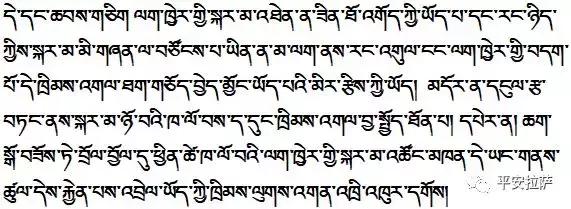 དེ་དང་ཆབས་གཅིག ལག་ཁྱེར་གྱི་སྐར་མ་འཐེན་ན་ཟིན་ཐོ་འགོད་ཀྱི་ཡོད་པ་དང་རང་ཉིད་
ཀྱིས་སྐར་མ་མི་གཞན་ལ་བཙོངས་པ་ཡིན་ན་མ་ལག་ནས་རང་འགུལ་ངང་ལག་ཁྱེར་གྱི་བདག་
པོ་དེ་ཁྲིམས་འགལ་ཐག་གཅོད་བྱེད་མྱོང་ཡོད་པའི་མིར་རྩིས་ཀྱི་ཡོད། མདོར་ན་དངུལ་རྩ་
བཏང་ནས་སྐར་མ་ཉོ་བའི་ཁ་ལོ་བས་ད་དུང་ཁྲིམས་འགལ་བྱ་སྤྱོད་ཐོན་པ། དཔེར་ན། ཆག་
སྒོ་བཟོས་ཏེ་བྲོལ་བྱོལ་དུ་ཕྱིན་ཚེ་ཁ་ལོ་བའི་ལག་ཁྱེར་གྱི་སྐར་མ་འཚོང་མཁན་དེ་ཡང་གནས་
ཚུལ་དེས་རྐྱེན་པས་འབྲེལ་ཡོད་ཀྱི་ཁྲིམས་ལུགས་འགན་འཁྲི་འཁུར་དགོས།
平安拉萨